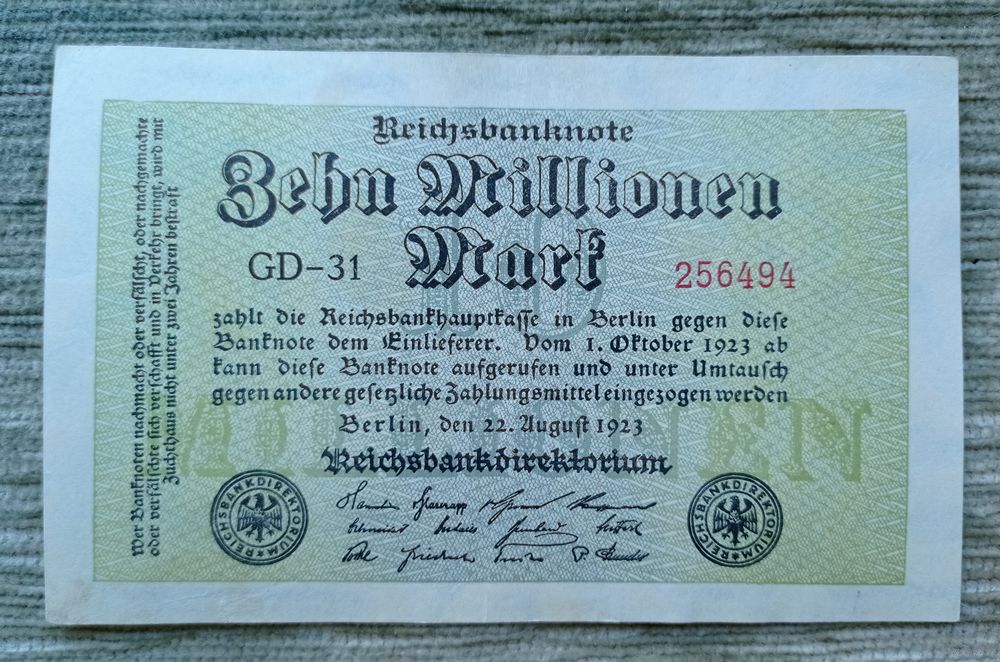 Reichsbanknote
Zehn Millionen
Mark
GD-31
256494
zahlt die Reichsbankhauptkasse in Berlin gegen diese
Banknote dem Einlieferer. Vom 1. Oktober 1923 ab
kann diese Banknote aufgerufen und unter Umtausch
gegen andere gesetzliche Zahlungsmittel eingezogen werden
Berlin, den 22. August 1923
Reichsbankdirektorium
Wer Banknoten nachmacht oder verfälscht, oder nachgemachte
oder verfälschte sich verschafft und in Verkehr bringt, wird mit
Zuchthaus nicht unter zwei Jahren bestraft
10
MILLIONEN
REICHSBANKDIREKTORIUM
REICHSBANKDIREKTORIUM